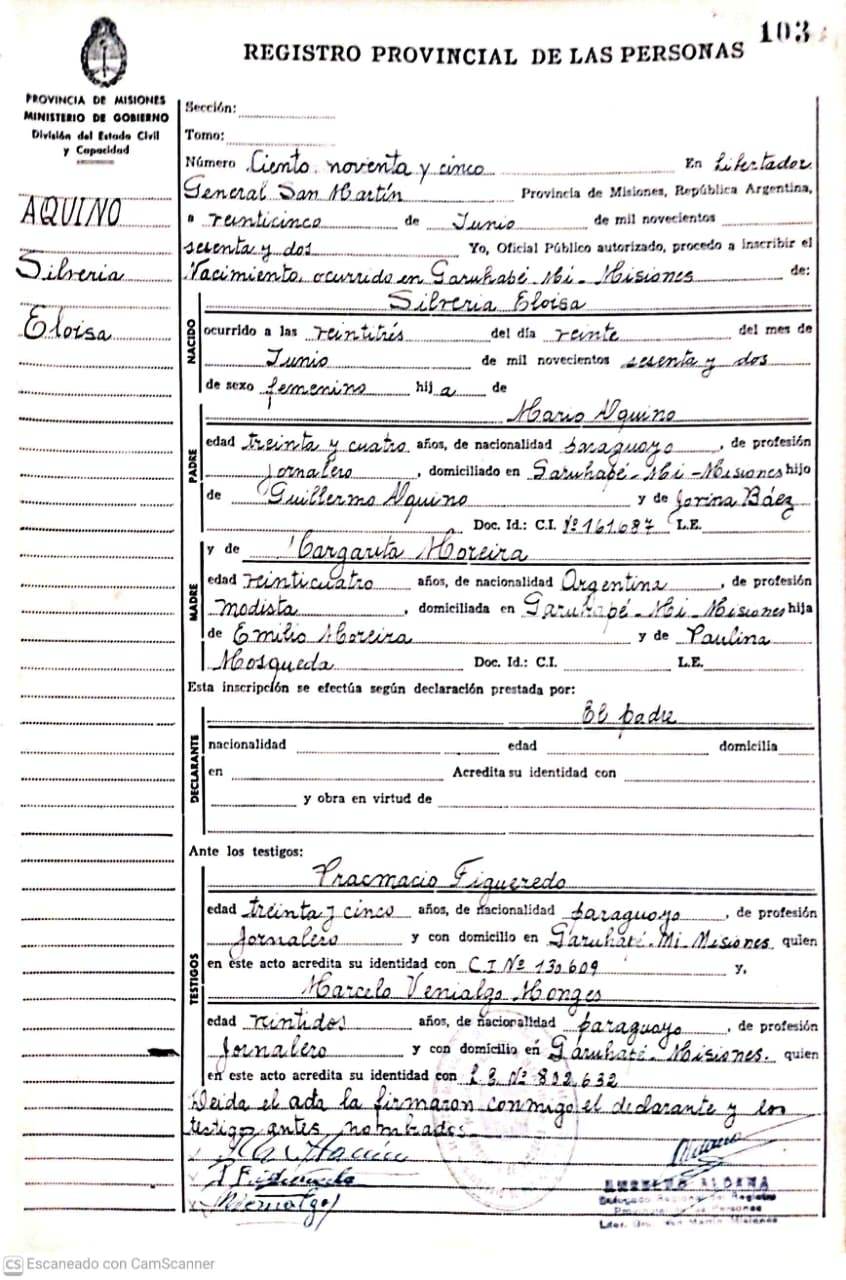 103
REGISTRO PROVINCIAL DE LAS PERSONAS
PROVINCIA DE MISIONES
MINISTERIO DE GOBIERNO
División del Estado Civil
y Capacidad
AQUINO
Silveria
Eloisa
Sección:
Tomo:
Número Ciento noventa y cinco En Libertador
General San Martín Provincia de Misiones, República Argentina,
a veinticinco de Junio de mil novecientos
sesenta y dos Yo, Oficial Público autorizado, procedo a inscribir el
Nacimiento, ocurrido en Garuhapé Mi-Misiones de:
Silveria Eloisa
NACIDO
ocurrido a las veintitrés del día veinte del mes de
Junio de mil novecientos sesenta y dos
de sexo femenino hij a de
Mario Aquino
PADRE
edad treinta y cuatro años, de nacionalidad paraguayo, de profesión
Jornalero, domiciliado en Garuhapé-Mi-Misiones hijo
de Guillermo Aquino y de Jovina Báez
Doc. Id.: C.I. Nº 161.687 L.E.
y de Margarita Moreira
MADRE
edad veinticuatro años, de nacionalidad Argentina, de profesión
modista, domiciliada en Garuhapé-Mi-Misiones hija
de Emilio Moreira y de Paulina
Mosqueda Doc. Id.: C.I. L.E.
Esta inscripción se efectúa según declaración prestada por:
El padre
DECLARANTE
nacionalidad edad domicilia
en Acredita su identidad con
y obra en virtud de
Ante los testigos:
Figueredo
TESTIGOS
edad treinta y cinco años, de nacionalidad paraguayo, de profesión
Jornalero y con domicilio en Garuhapé-Mi Misiones quien
en este acto acredita su identidad con C.I Nº 130.609 y,
Marcelo Venialgo Monges
edad veintidos años, de nacionalidad paraguayo, de profesión
Jornalero y con domicilio en Garuhapé-Misiones. quien
en este acto acredita su identidad con Nº 802.632
Leida el acta la firmaron conmigo el declarante y los
testigos antes nombrados
Venialgo
Delegado Regional de Registro
Provincial de las Personas
Ldor. Gral. San Martín Misiones
CS Escaneado con CamScanner